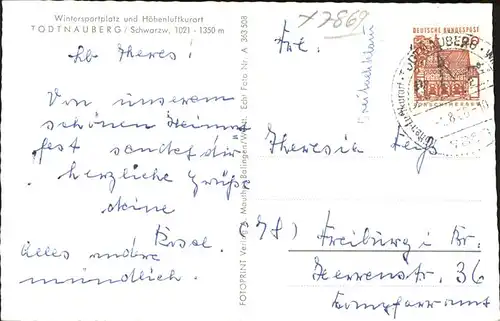 Wintersportplatz und Höhenluftkurort
TODTNAUBERG / Schwarzw, 1021 - 1350 m
Lb Theres!
Von unserem
schönen Heimat
fest sendet dir
herzliche Grüße
deine
Rosel.
Alles andere
mündlich.
FOTOPRINT Verlag Mauthe Balingen/Württ. Echt Foto Nr. A 363 508
Frl.
Theresia
(78) Freiburg i Br.
Herrenstr. 36
DEUTSCHE BUNDESPOST
TODTNAUBERG
Höhenluftkurort